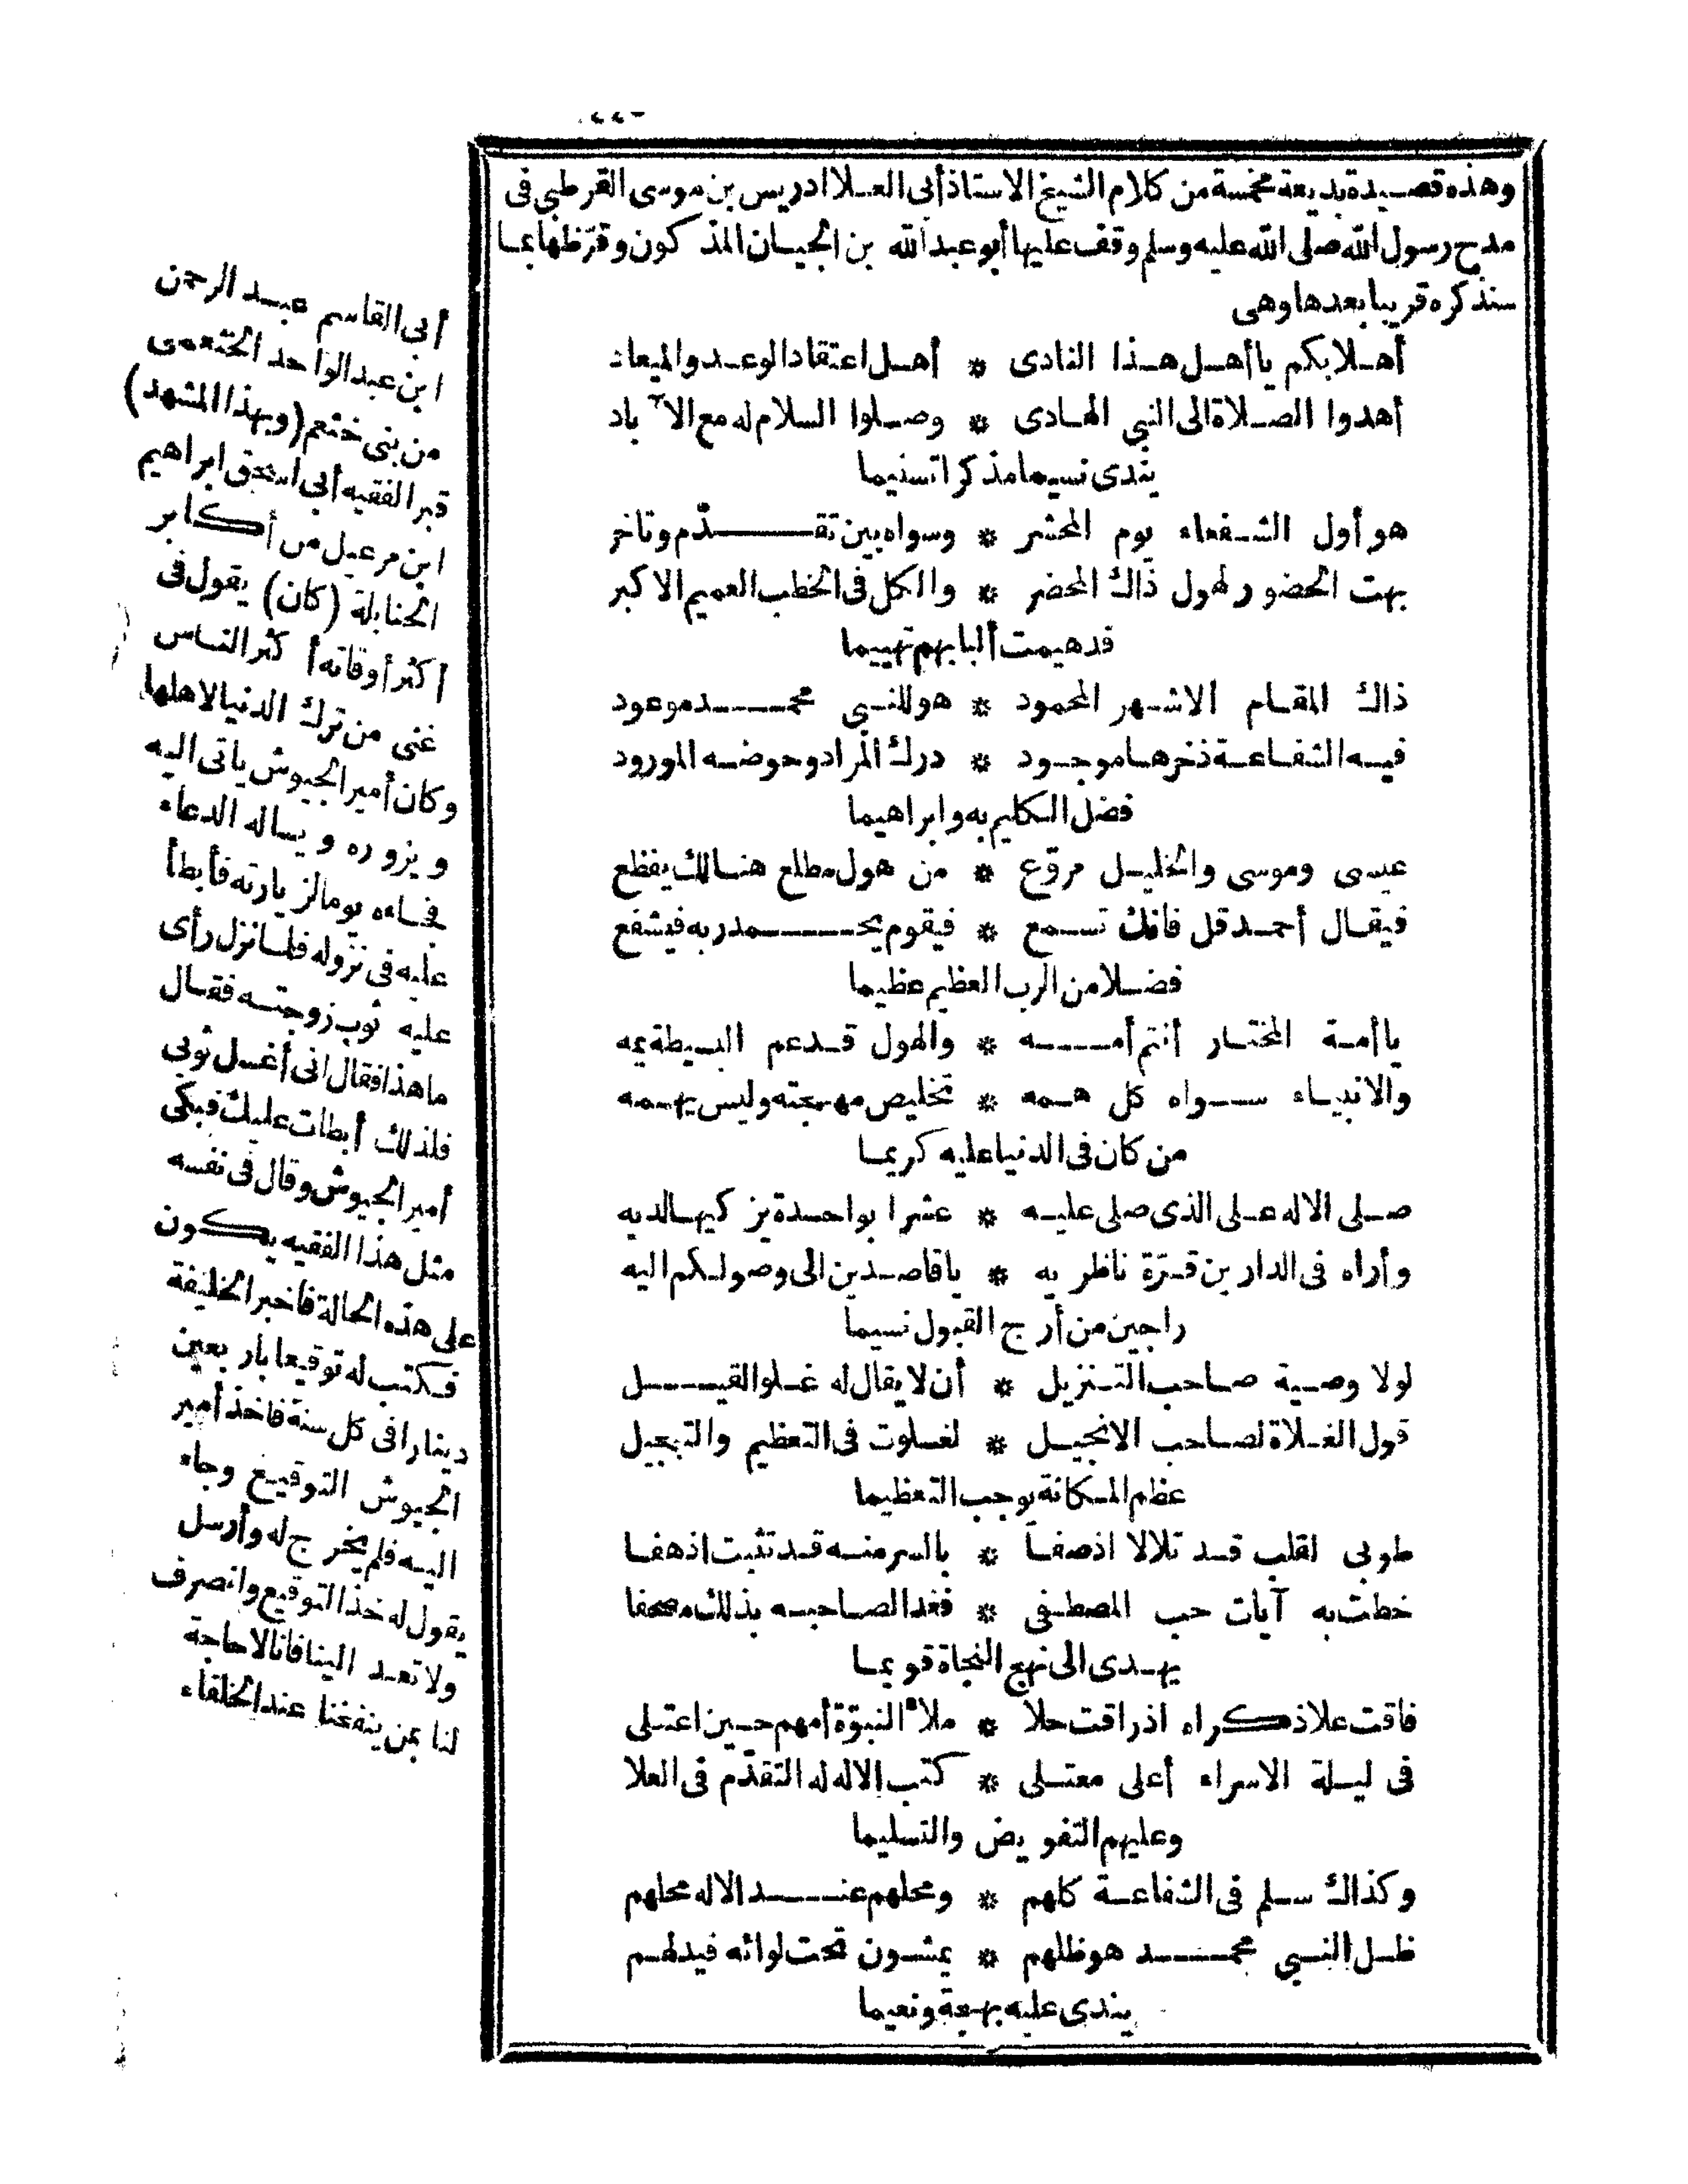 وهذه قصيدة بديعة مخمسة من كلام الشيخ الاستاذ أبى العلا ادريس بن موسى القرطبى فى
مدح رسول الله صلى الله عليه وسلم وقف عليها أبو عبد الله بن الجيان المذكور وقرّظها بما
سنذكره قريبا بعدها وهى
أهلا بكم يا أهل هذا النادى * أهل اعتقاد الوعد والميعاد
أهدوا الصلاة الى النبي الهادى * وصلوا السلام له مع الآباد
يندى نسيما مذكرا تسنيما
هو أول الشفعاء يوم المحشر * وسواه بين تقدّم وتاخر
بهت الحضور لهول ذاك المحضر * والكل فى الخطب العميم الاكبر
قد هيمت ألبابهم تهييما
ذاك المقام الاشهر المحمود * هو للنبي محمد موعود
فيه الشفاعة ذخرها موجود * درك المراد وحوضه المورود
فضل الكليم به وابراهيما
عيسى وموسى والخليل مروّع * من هول مطلع هنالك يفظع
فيقال أحمد قل فانك تسمع * فيقوم يحمد ربه فيشفع
فضلا من الرب العظيم عظيما
يا أمة المختار أنتم أمه * والهول قد عم البسيطة يمه
والانبياء سواه كل همه * تخليص مهجته وليس يهمه
من كان فى الدنيا عليه كريما
صلى الاله على الذى صلى عليه * عشرا بواحدة يزكيها لديه
وأراه فى الدارين قرّة ناظريه * يا قاصدين الى وصولكم اليه
راجين من أرج القبول نسيما
لولا وصية صاحب التنزيل * أن لا يقال له غلوا القيل
قول الغلاة لصاحب الانجيل * لغلوت فى التعظيم والتبجيل
عظم المكانة يوجب التعظيما
طوبى لقلب قد تلالا اذ صفا * بالسر منه قد تثبت اذ هفا
خطت به آيات حب المصطفى * فغدا لصاحبه بذلك مصحفا
يهدى الى نهج النجاة قويما
فاقت علا ذكراه اذ راقت حلا * ملأ النبوّة أمهم حين اعتلى
فى ليلة الاسراء أعلى معتلى * كتب الاله له التقدّم فى العلا
وعليهم التفويض والتسليما
وكذاك سلم فى الشفاعة كلهم * ومحلهم عند الاله محلهم
ظل النبي محمد هو ظلهم * يمشون تحت لوائه فيدلهم
يندى عليه بهجة ونعيما
أبى القاسم عبد الرحمن
ابن عبد الواحد الخثعمى
من بنى خثعم (وبهذا المشهد)
قبر الفقيه أبى اسحق ابراهيم
ابن مرعيل من أكابر
الحنابلة (كان) يقول فى
أكثر أوقاته أكثر الناس
غنى من ترك الدنيا لاهلها
وكان أمير الجيوش ياتى اليه
ويزوره ويساله الدعاء
فجاءه يوما لزيارته فأبطأ
عليه فى نزوله فلما نزل رأى
عليه ثوب زوجته فقال
ما هذا فقال انى أغسل ثوبى
فلذلك أبطات عليك فبكى
أمير الجيوش وقال فى نفسه
مثل هذا الفقيه يكون
على هذه الحالة فاخبر الخليفة
فكتب له توقيعا باربعين
دينارا فى كل سنة فاخذ أمير
الجيوش التوقيع وجاء
اليه فلم يخرج له وأرسل
يقول له خذ التوقيع وانصرف
ولا تعد الينا فانا لا حاجة
لنا بمن ينفعنا عند الخلفاء